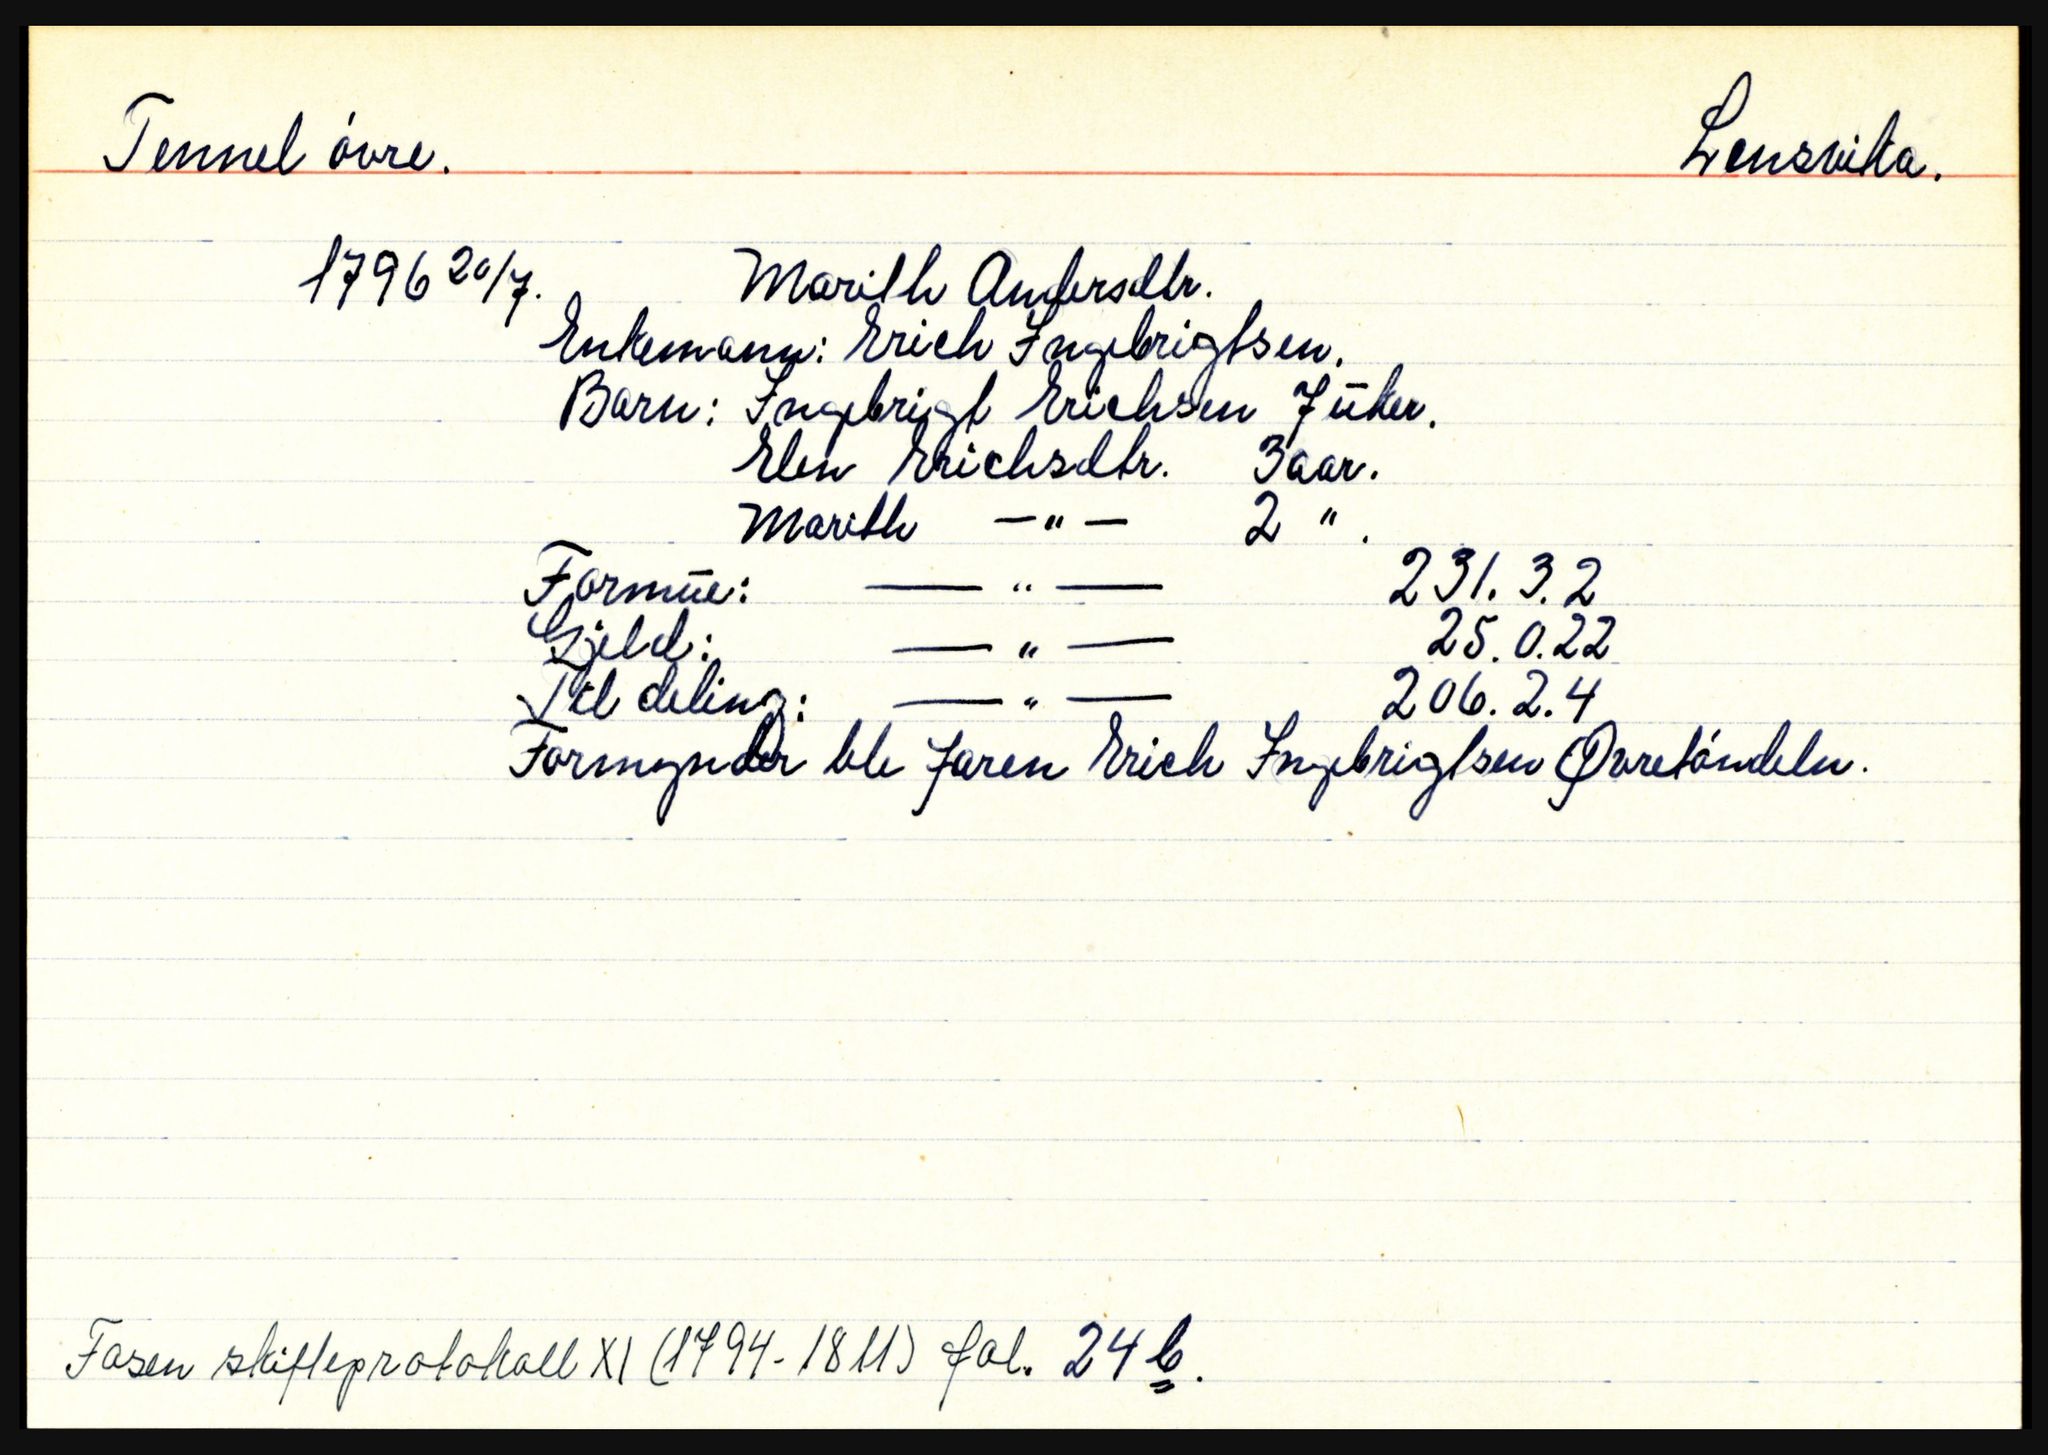 Tennel óvre. Lensvika.
1796 20/7. Marith Andersdtr.
Enkemann: Erich Ingebrigtsen.
Barn: Ingebrigt Erichsen 7 ūker.
Elen Erichsdtr. 3 aar.
Marith —"— 2 ".
Formūe: — " — 231. 3. 2
Gjeld: — " — 25. 0. 22
Til deling: — " — 206. 2. 4
Formynder ble faren Erich Ingebrigtsen Øvretóndeln.
Fosen skifteprotokoll XI (1794-1811) fol. 24 b.